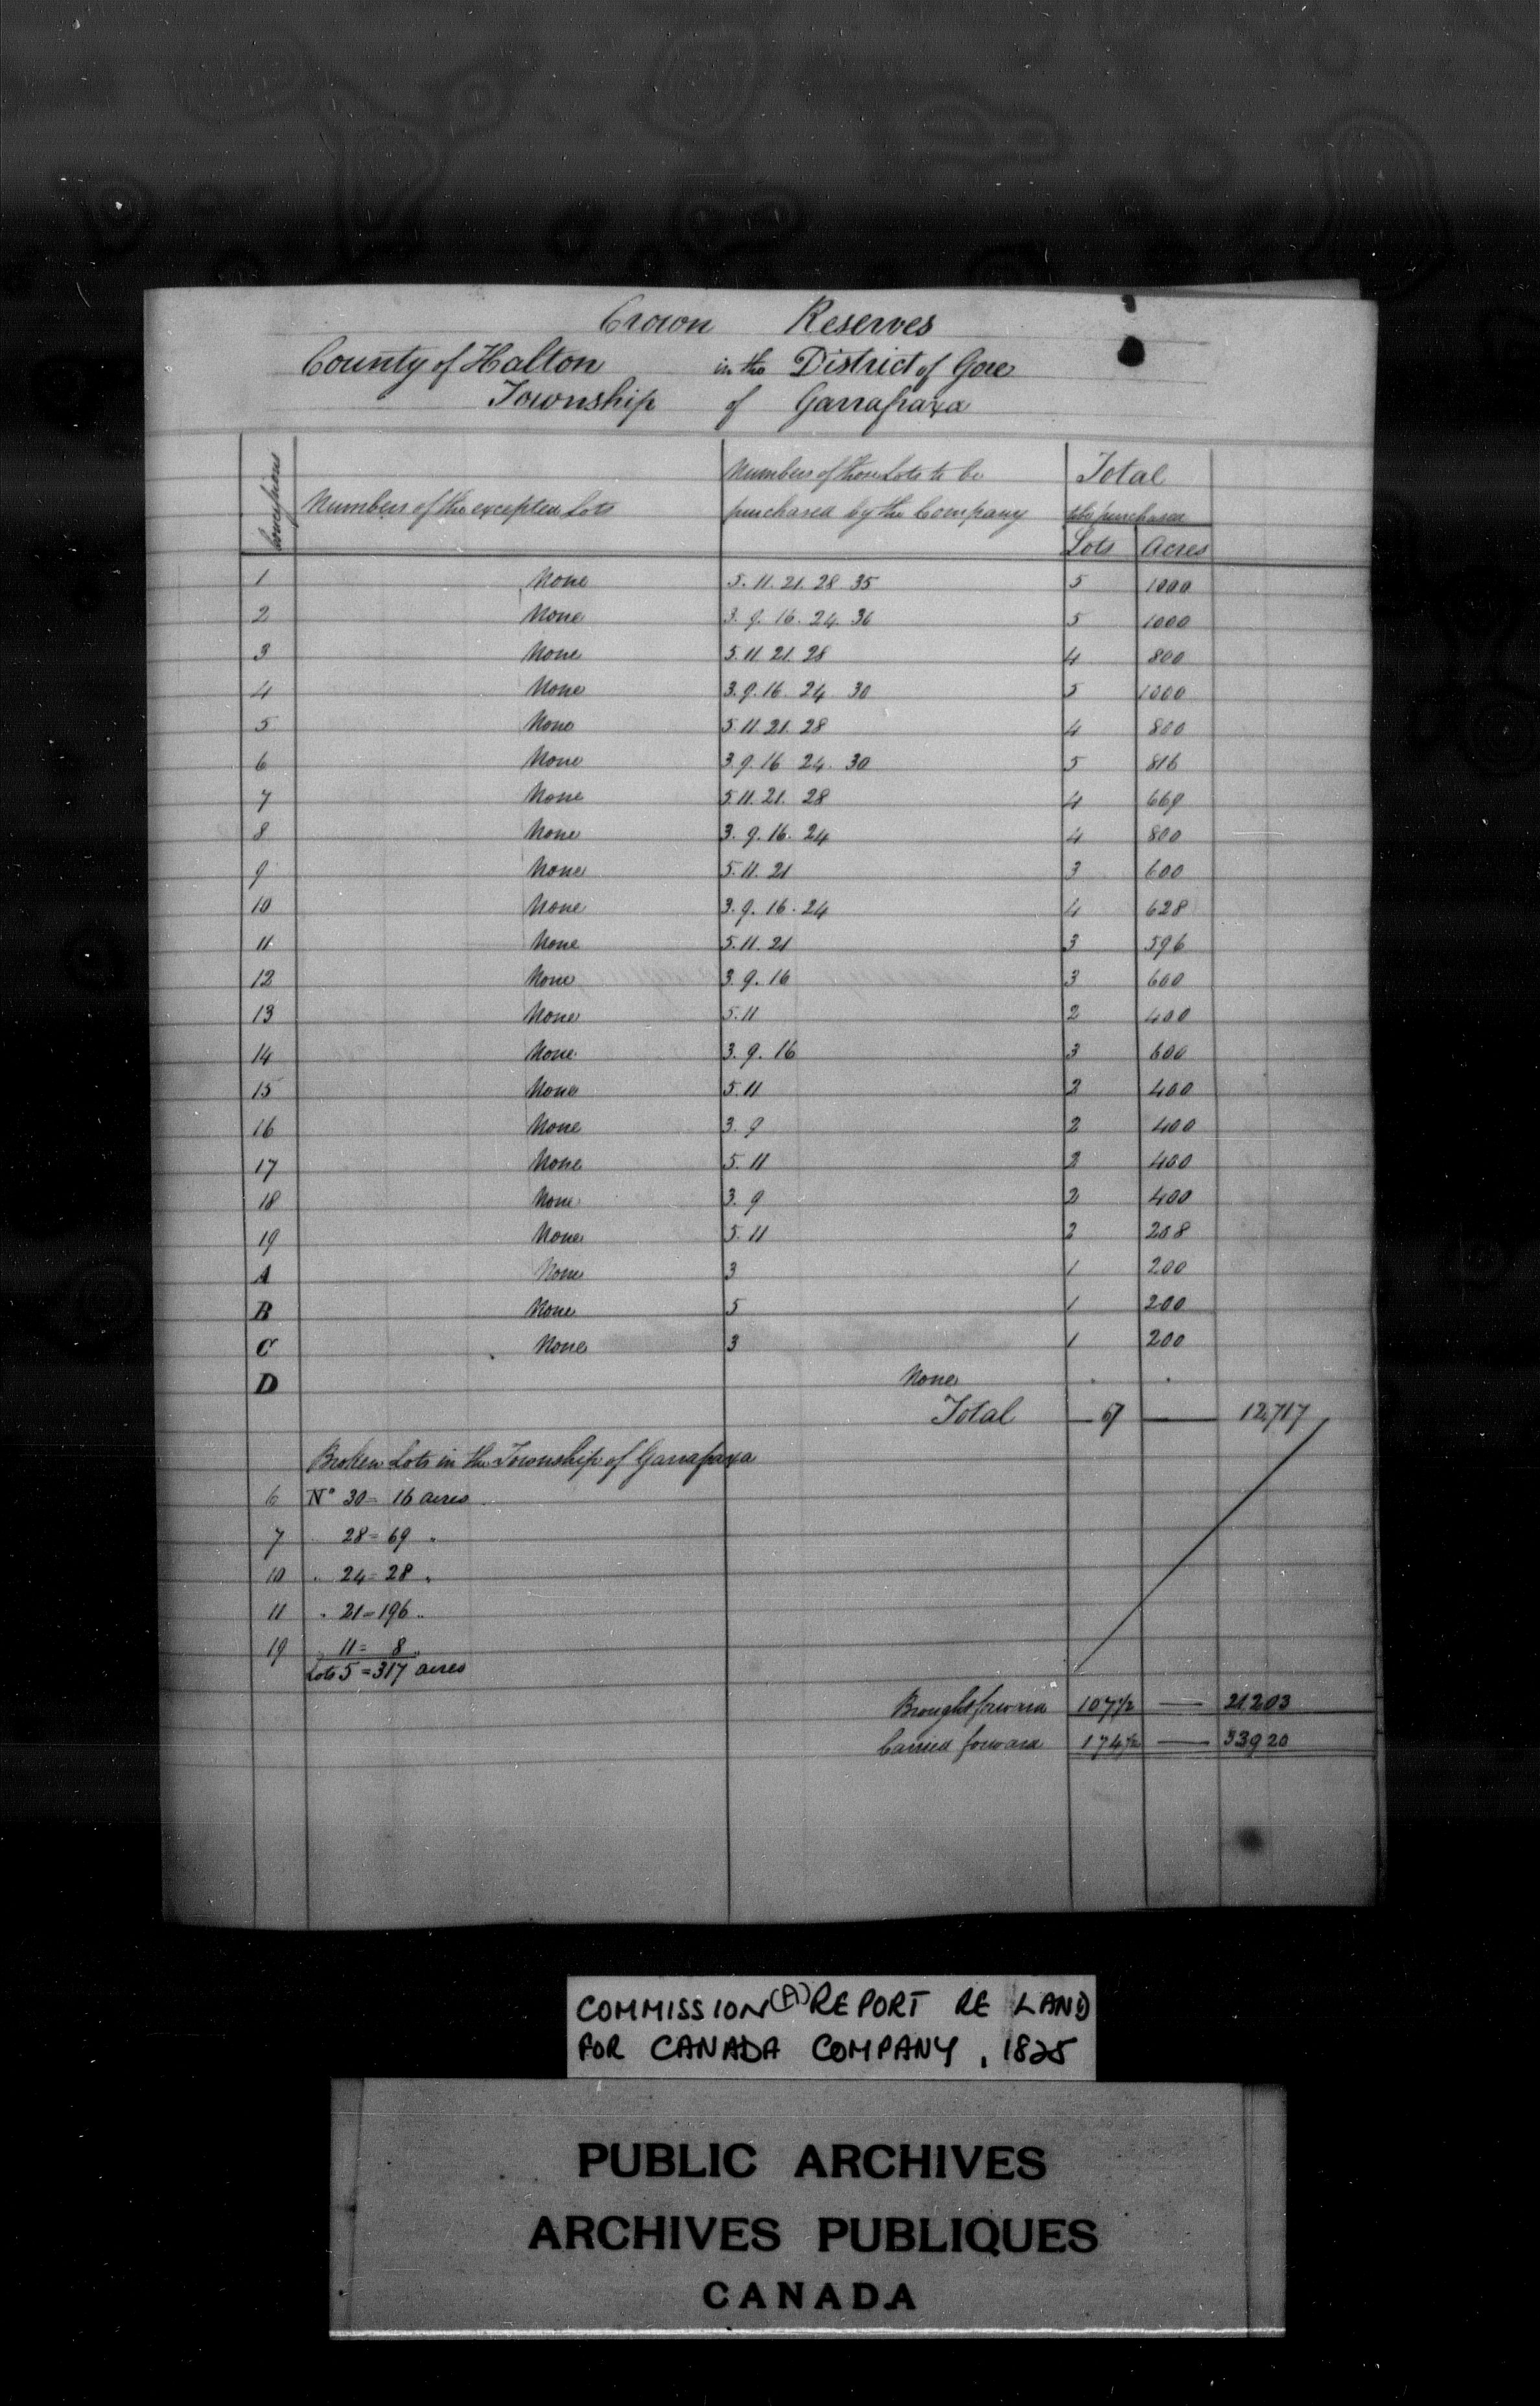 Crown Reserves
County of Halton in the District of Gore
Township of Garrafraxa
Concessions
Numbers of the excepted Lots
Numbers of those Lots to be purchased by the Company
Total
to be purchased
Lots Acres
1 None 5. 11. 21. 28 35 5 1000
2 None 3. 9. 16. 24. 30 5 1000
3 None 5. 11. 21. 28 4 800
4 None 3. 9. 16. 24 30 5 1000
5 None 5. 11. 21. 28 4 800
6 None 3. 9. 16 24. 30 5 816
7 None 5. 11. 21. 28 4 669
8 None 3. 9. 16. 24 4 800
9 None 5. 11. 21 3 600
10 None 3. 9. 16. 24 4 628
11 None 5. 11. 21 3 596
12 None 3. 9. 16 3 600
13 None 5. 11 2 400
14 None 3. 9. 16 3 600
15 None 5. 11 2 400
16 None 3. 9 2 400
17 None 5. 11 2 400
18 None 3. 9 2 400
19 None 5. 11 2 208
A None 3 1 200
B None 5 1 200
C None 3 1 200
D None
Total 67 — 12,717
Broken Lots in the Township of Garrafraxa
6 No 30 = 16 acres
7 28 = 69 "
10 " 24 = 28 "
11 " 21 = 196 "
19 11 = 8 "
Lots 5 = 317 acres
Brought forward 107 1/2 — 21203
Carried forward 174 1/2 — 33920
COMMISSION (A) REPORT RE LAND
FOR CANADA COMPANY, 1825
PUBLIC ARCHIVES
ARCHIVES PUBLIQUES
CANADA